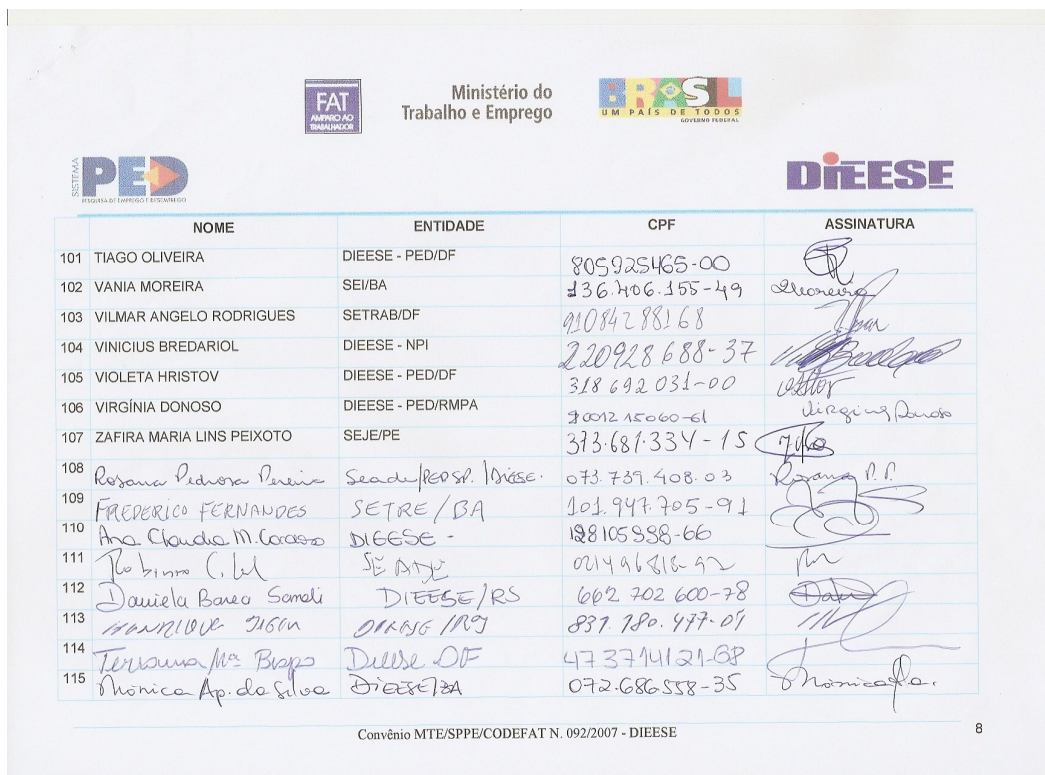 FAT
AMPARO AO
TRABALHADOR
Ministério do
Trabalho e Emprego
BRASIL
UM PAÍS DE TODOS
GOVERNO FEDERAL
SISTEMA
PED
PESQUISA DE EMPREGO E DESEMPREGO
DIEESE
NOME ENTIDADE CPF ASSINATURA
101 TIAGO OLIVEIRA DIEESE - PED/DF 805925465-00
102 VANIA MOREIRA SEI/BA 136.406.155-49
103 VILMAR ANGELO RODRIGUES SETRAB/DF 91084288168
104 VINICIUS BREDARIOL DIEESE - NPI 220928688-37
105 VIOLETA HRISTOV DIEESE - PED/DF 318692031-00
106 VIRGÍNIA DONOSO DIEESE - PED/RMPA Virginia Donoso
107 ZAFIRA MARIA LINS PEIXOTO SEJE/PE 373.681.334-15
108 Rosana Pedrosa Pereira Seade/PEDSP./Dieese. 073.739.408.03 Rosana P.P.
109 FREDERICO FERNANDES SETRE/BA 101.947.705-91
110 Ana Claudia M. Cardoso DIEESE -
111
112 Daniela Barea Sandi DIEESE/RS 662 702 600-78
113 HENRIQUE
114 Dieese DF
115 Mônica Ap. da Silva DIEESE/BA 072.686558-35
Convênio MTE/SPPE/CODEFAT N. 092/2007 - DIEESE
8